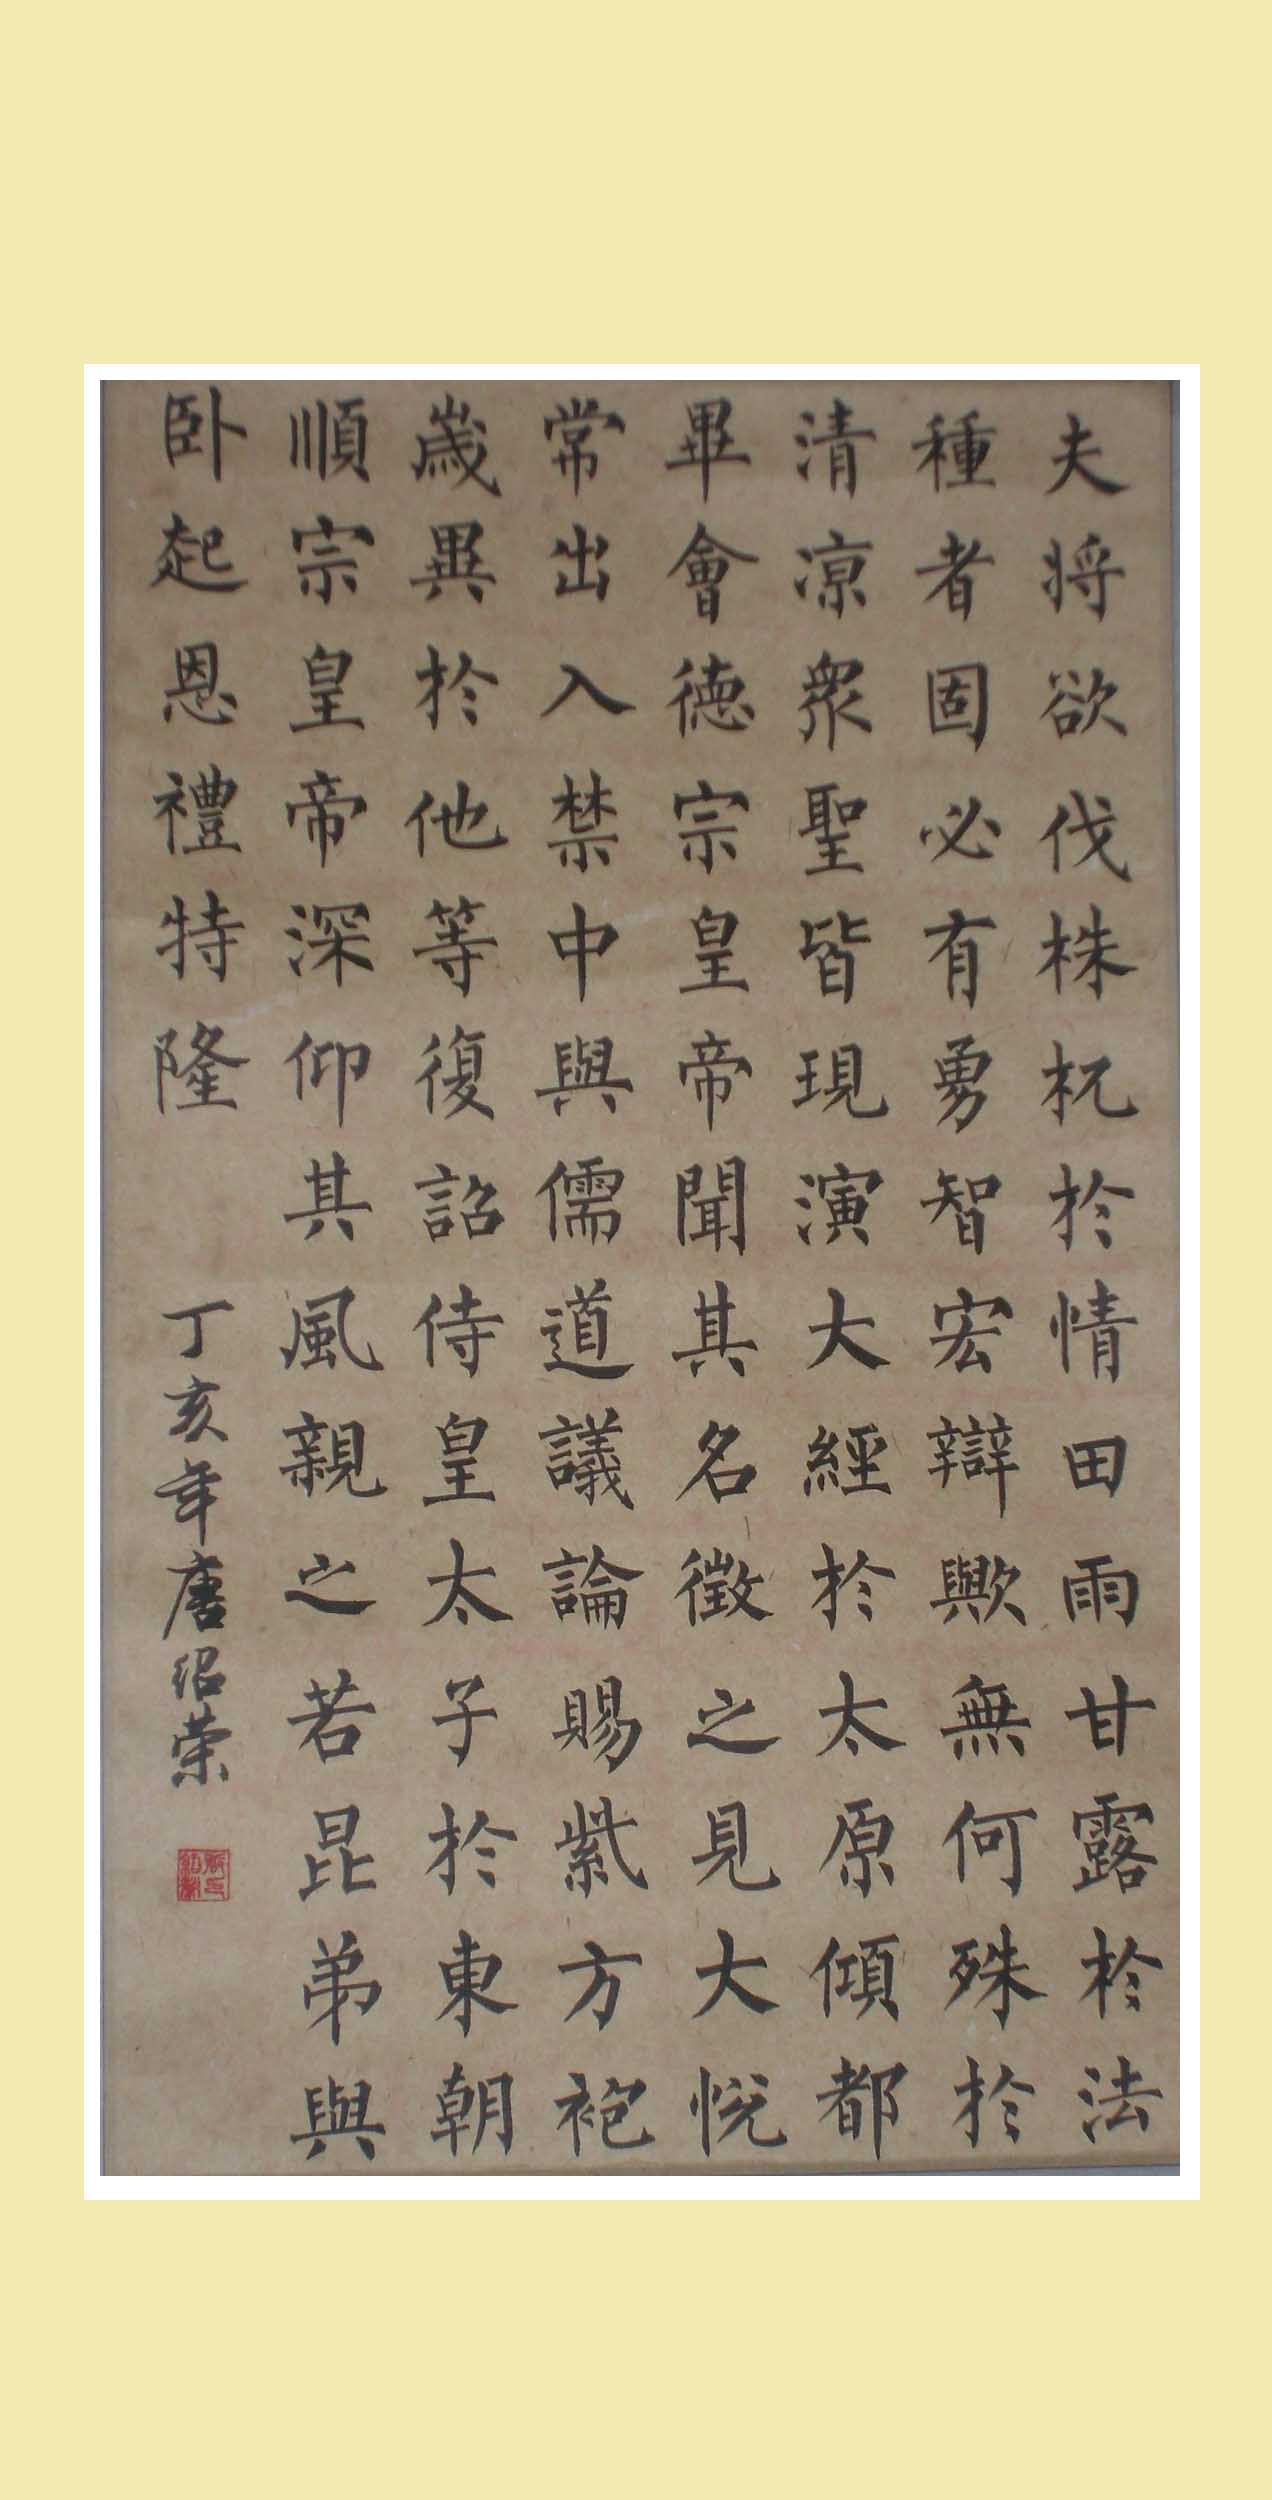 夫将欲伐株杌於情田雨甘露於法
種者固必有勇智宏辯歟無何殊於
清凉衆聖皆現演大經於太原傾都
畢會德宗皇帝聞其名徵之見大悅
常出入禁中與儒道議論賜紫方袍
歲異於他等復詔侍皇太子於東朝
順宗皇帝深仰其風親之若昆弟與
卧起恩禮特隆
丁亥年唐绍荣